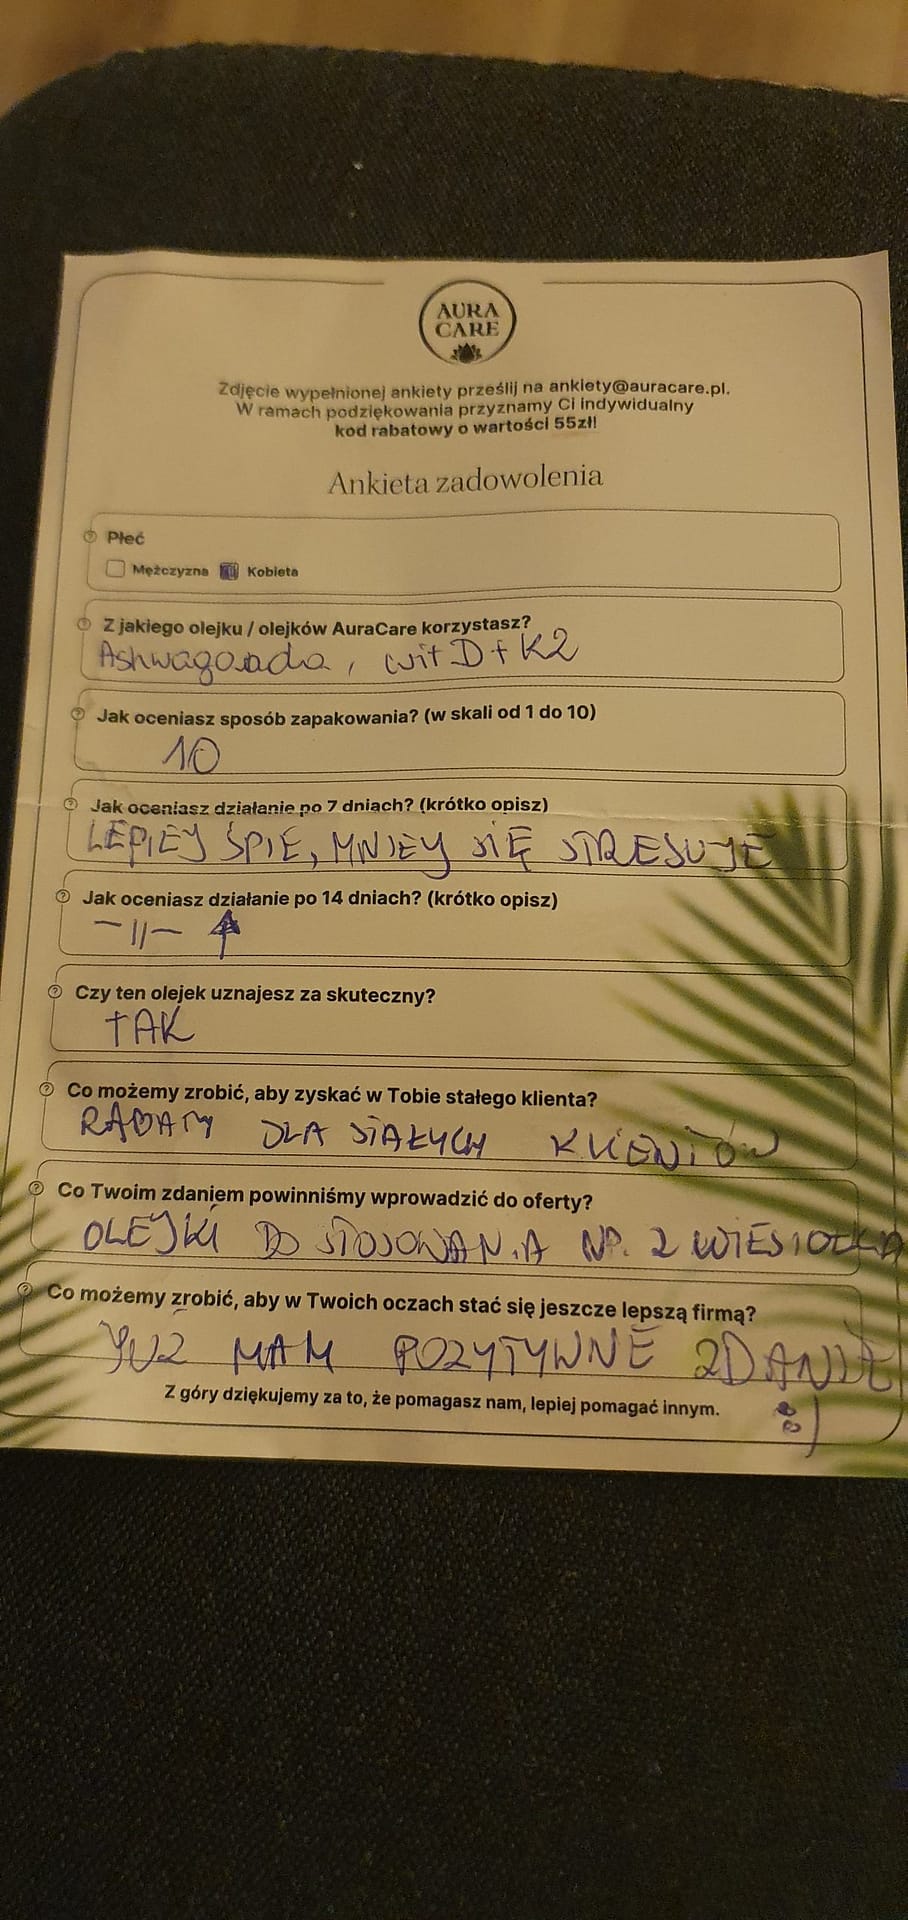 AURA
CARE
Zdjęcie wypełnionej ankiety prześlij na ankiety@auracare.pl.
W ramach podziękowania przyznamy Ci indywidualny
kod rabatowy o wartości 55zł!
Ankieta zadowolenia
Płeć
Mężczyzna Kobieta
Z jakiego olejku / olejków AuraCare korzystasz?
Ashwaganda, wit D+K2
Jak oceniasz sposób zapakowania? (w skali od 1 do 10)
10
Jak oceniasz działanie po 7 dniach? (krótko opisz)
LEPIEJ ŚPIĘ, MNIEJ SIĘ STRESUJĘ
Jak oceniasz działanie po 14 dniach? (krótko opisz)
-11- ↑
Czy ten olejek uznajesz za skuteczny?
TAK
Co możemy zrobić, aby zyskać w Tobie stałego klienta?
RABATY DLA STAŁYCH KLIENTÓW
Co Twoim zdaniem powinniśmy wprowadzić do oferty?
OLEJKI DO STOSOWANIA NP. Z WIESIOŁKA
Co możemy zrobić, aby w Twoich oczach stać się jeszcze lepszą firmą?
JUŻ MAM POZYTYWNE ZDANIE
Z góry dziękujemy za to, że pomagasz nam, lepiej pomagać innym.
:)